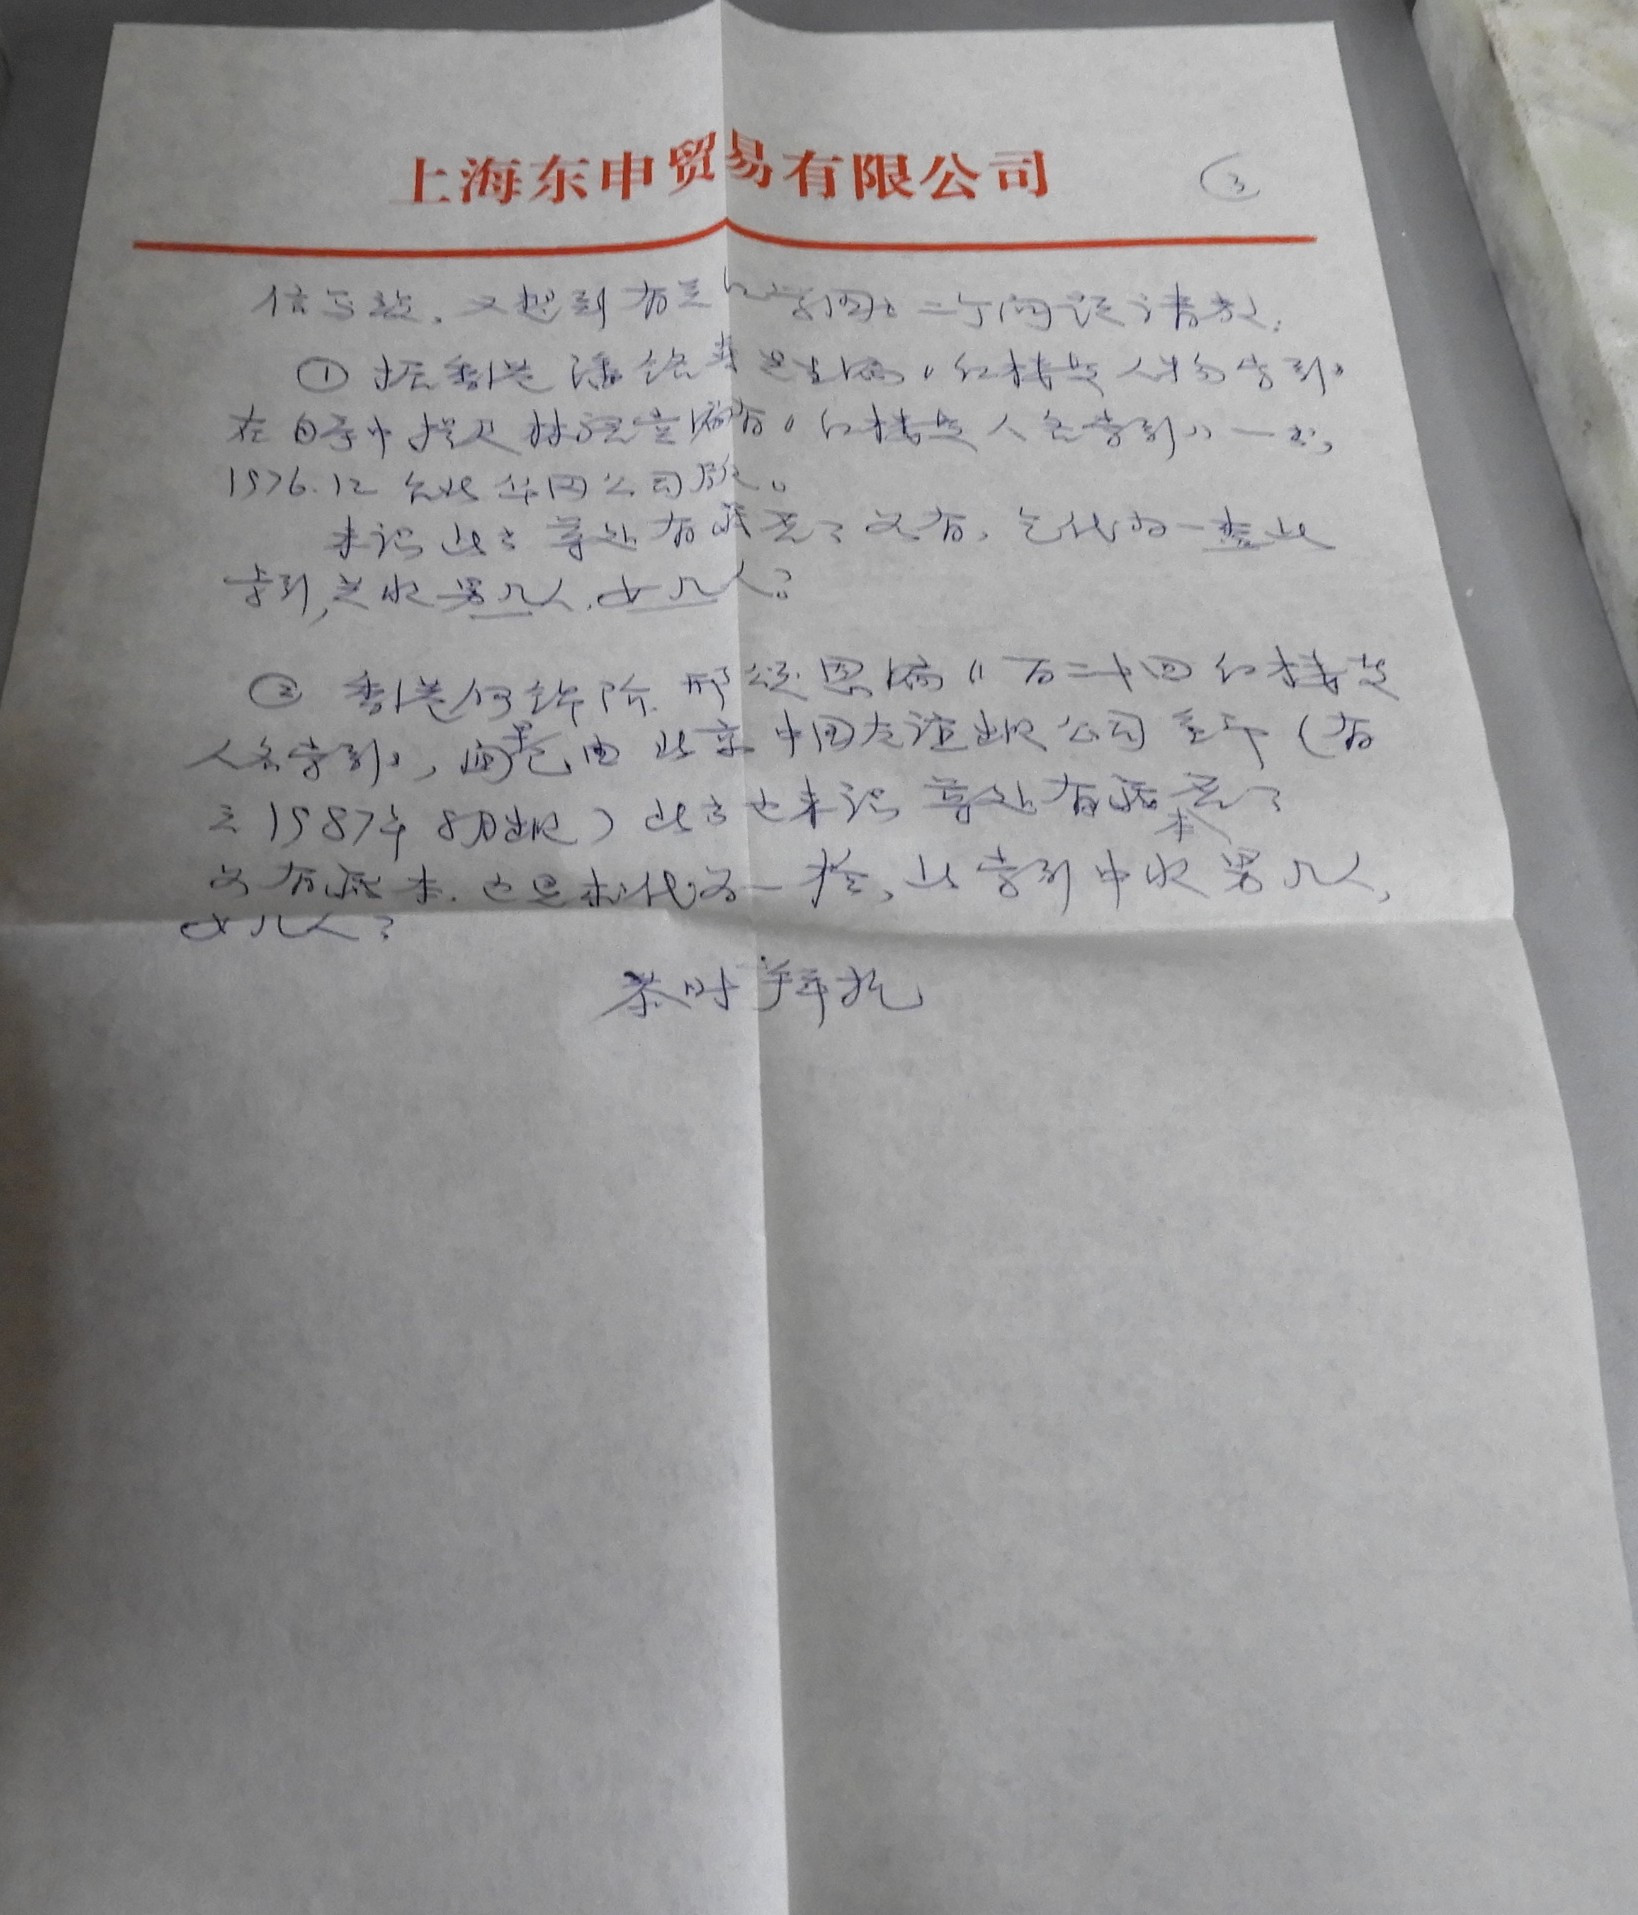 上海东申贸易有限公司
③
信写、又想到有关红学、二个问题请教:
① 据香港潘铭燊先生编《红楼梦人物索引》
在自序中提及林语堂编有《红楼梦人名索引》一书,
1976.12 台北华冈公司版。
未识此书尊处有藏否?如有,乞代为一查此
索引,共收男几人,女几人?
② 香港何锦阶、邢颂恩编《百二十回红楼梦
人名索引》,由北京中国友谊出版公司重印(有
云1987年8月出版)此书也未识尊处有藏本否?
如有藏本,也乞代为一查,此索引中收男几人,
女几人?
拜托